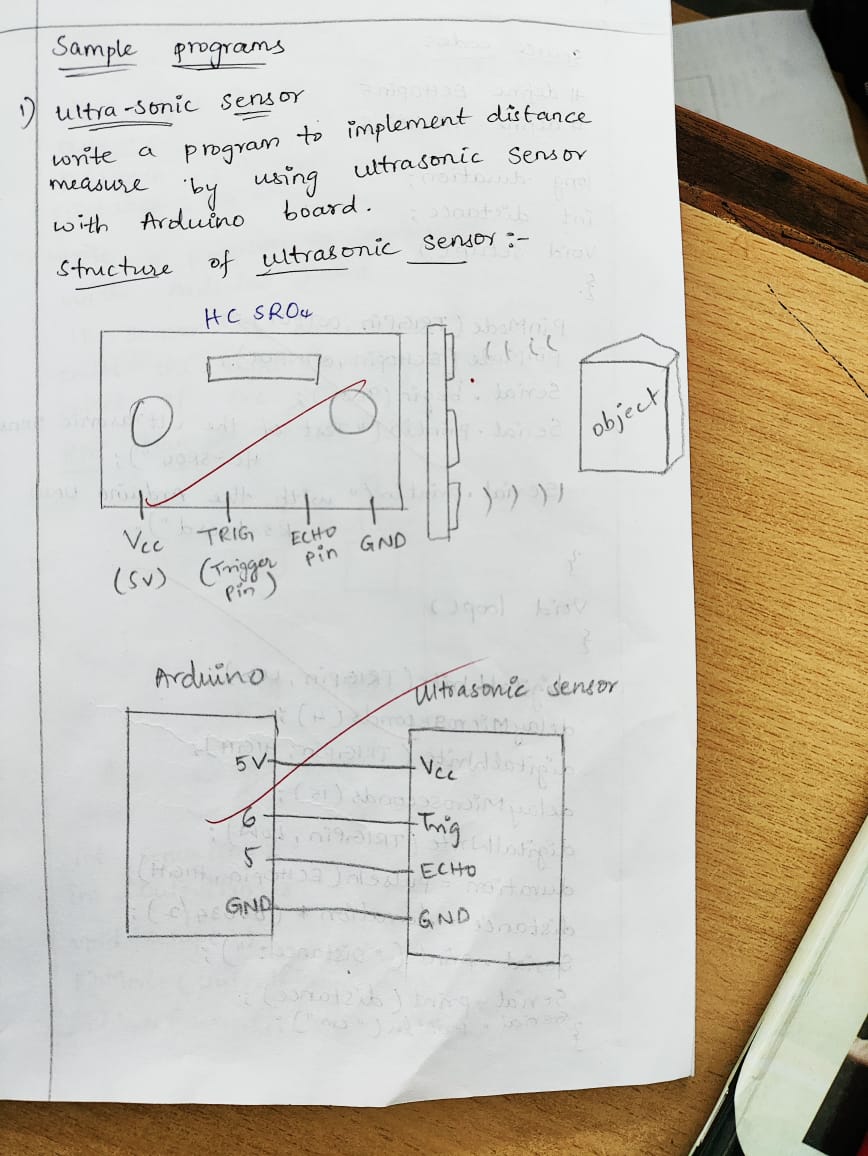 Sample programs
1) Ultra-sonic sensor
write a program to implement distance
measure by using ultrasonic sensor
with Arduino board.
Structure of ultrasonic sensor :-
HC SR04
object
Vcc TRIG ECHO GND
(5V) (Trigger pin) pin
Arduino
Ultrasonic sensor
5V Vcc
6 Trig
5 ECHO
GND GND